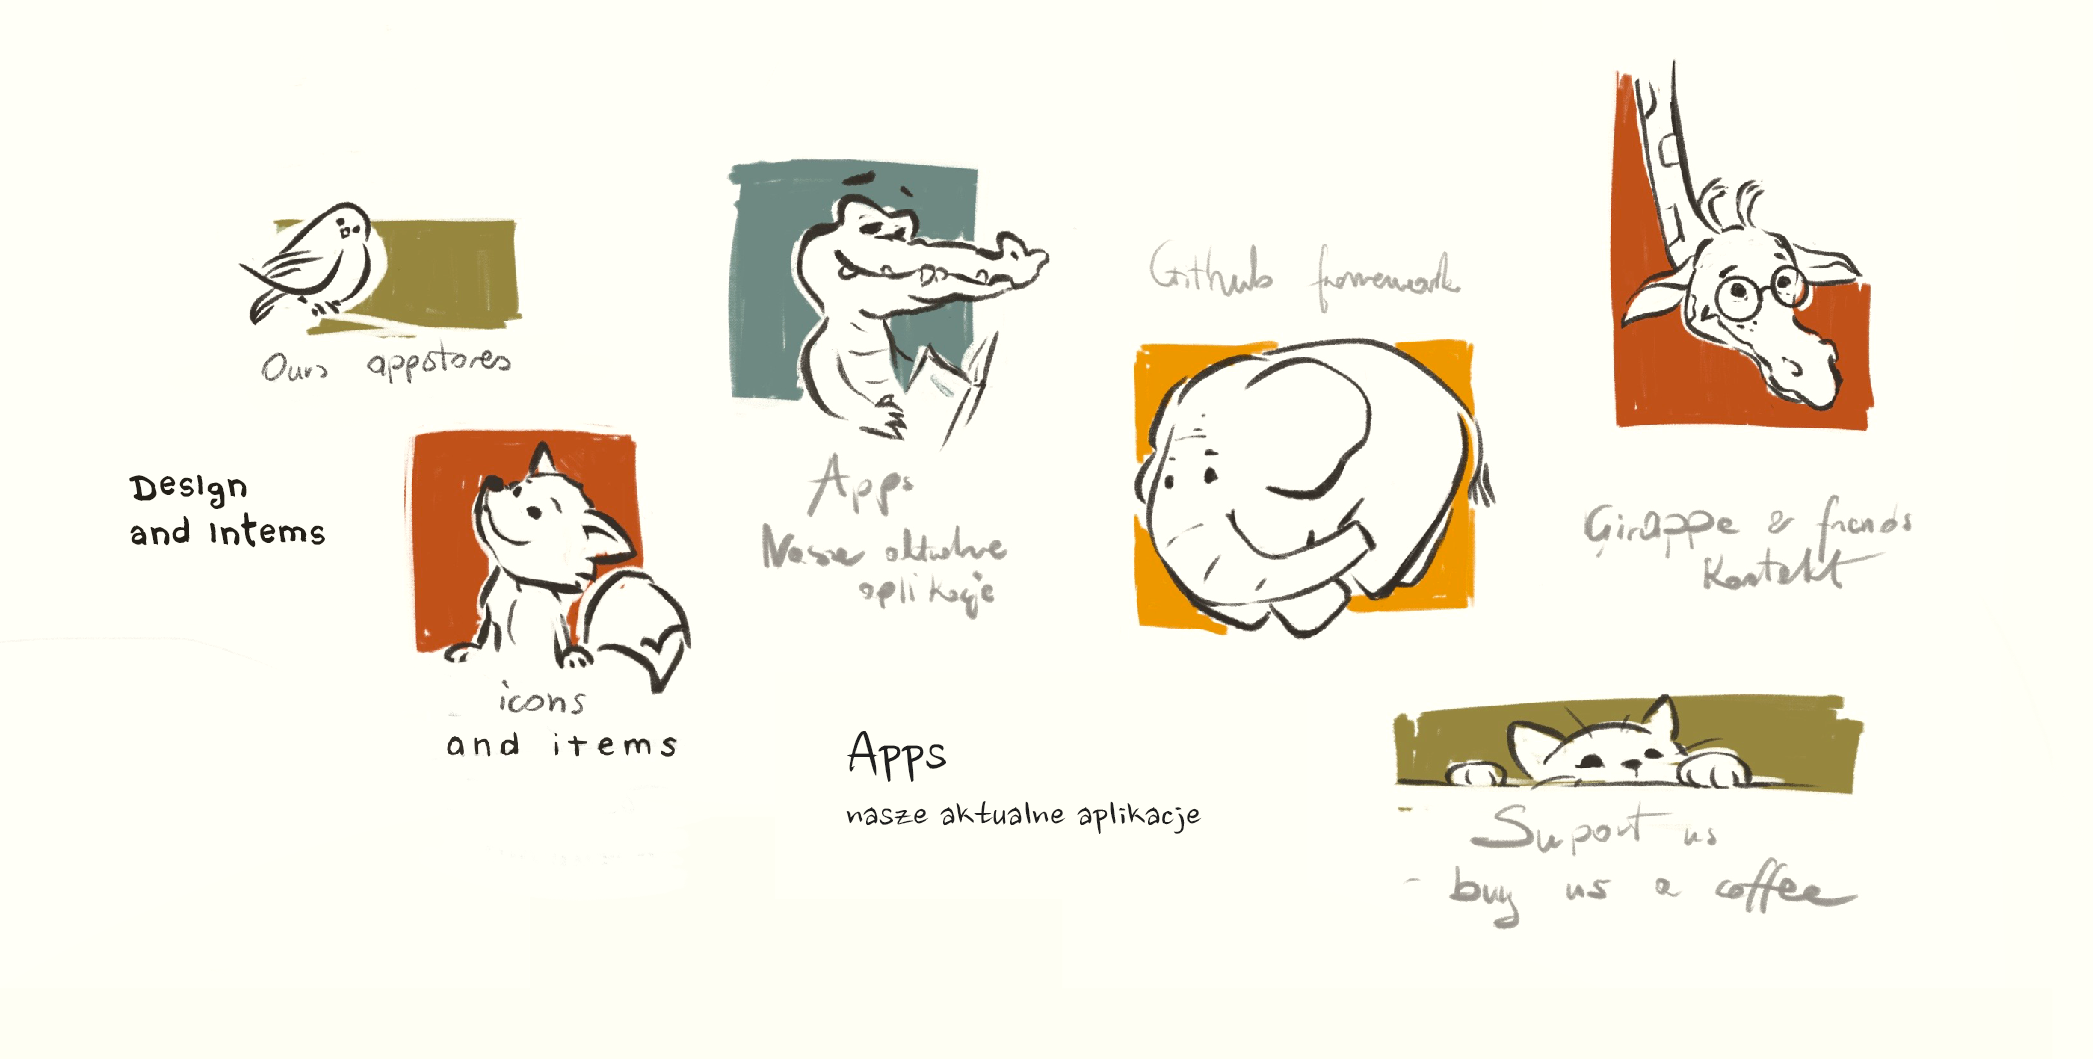 Ours appstores
Design
and Intems
icons
and items
Apps
Nasze aktualne
aplikacje
Apps
nasze aktualne aplikacje
Github framework
Girappe & frends
Kontakt
Suport us
- buy us a coffee